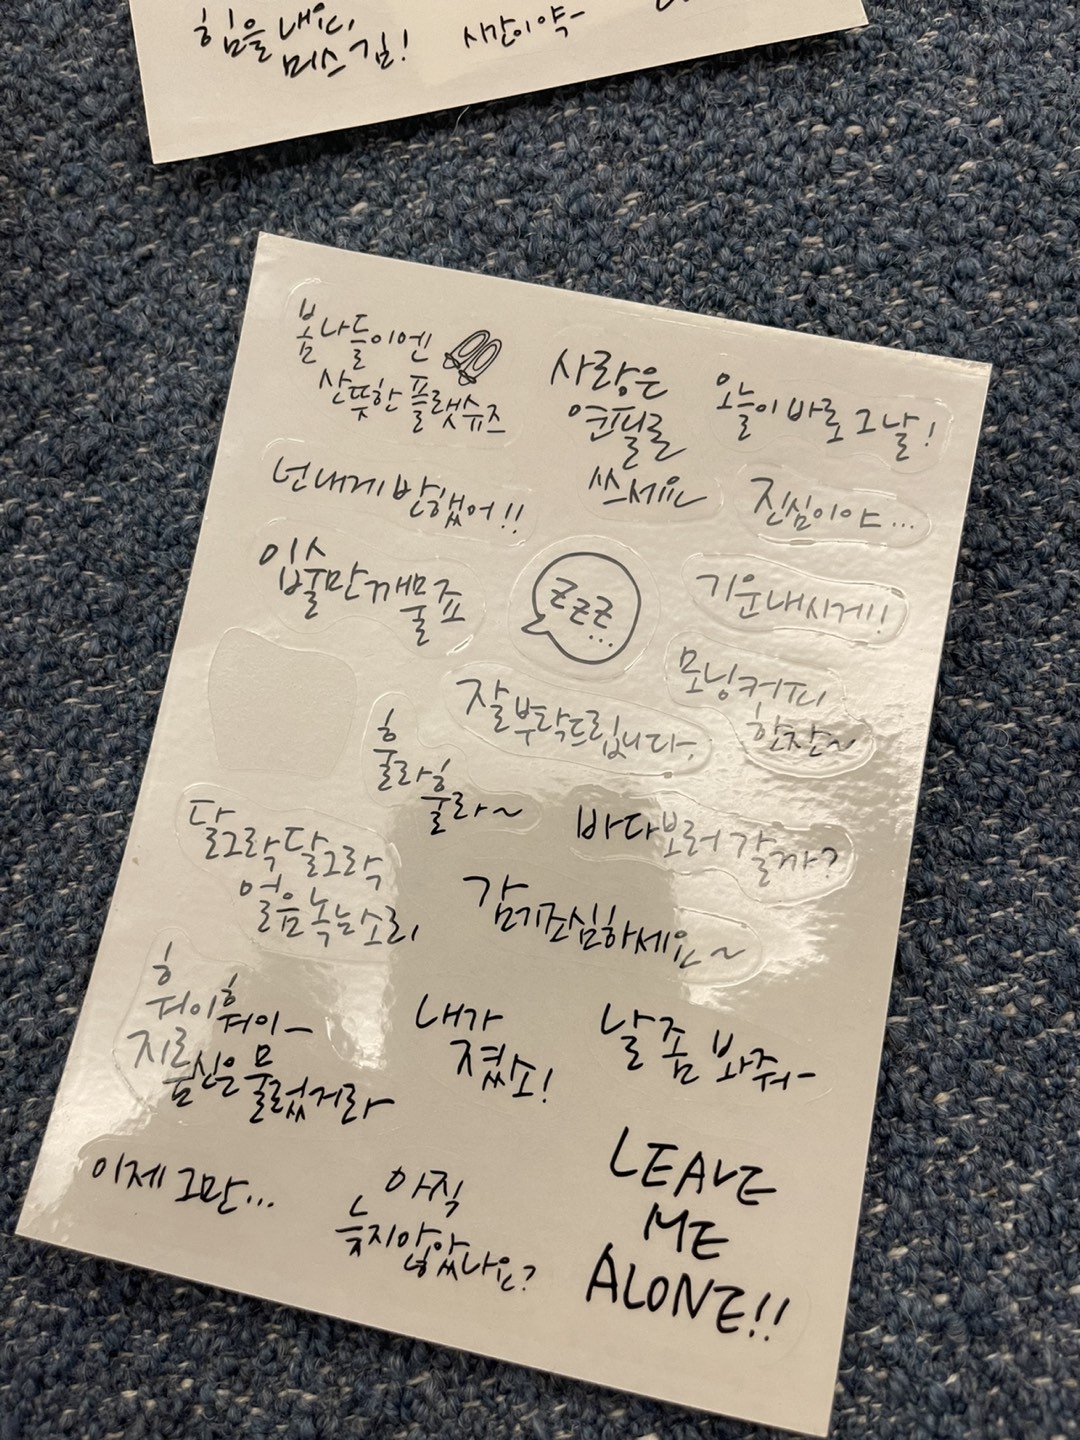 힘을 내 미스 김!
시간이 약-
봄나들이엔
산뜻한 플랫슈즈
사랑은
연필로
쓰세요
오늘이 바로 그날!
넌 내게 반했어!!
진심이야...
입술만 깨물죠
zzz...
기운내시게!!
모닝커피
한잔~
잘 부탁드립니다.
훌라
훌라~
바다 보러 갈까?
달그락 달그락
얼음 녹는 소리
감기조심하세요~
훠이훠이-
지름신은 물렀거라
내가
졌소!
날 좀 봐줘-
이제 그만...
아직
늦지 않았나요?
LEAVE
ME
ALONE!!